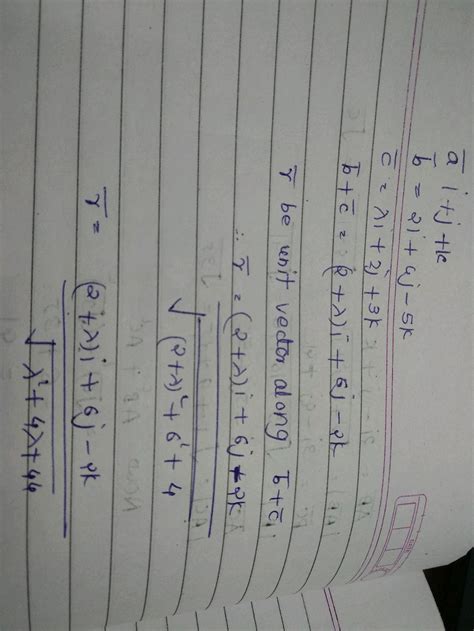 a̅ i + j + k
b̅ = 2i + 4j - 5k
c̅ = λi + 2j + 3k
b̅ + c̅ = (2+λ)i + 6j - 2k
r̅ be unit vector along b̅ + c̅
∴ r̅ = (2+λ)i + 6j - 2k
√(2+λ)² + 6² + 4
r̅ = (2+λ)i + 6j - 2k
√λ² + 4λ + 44